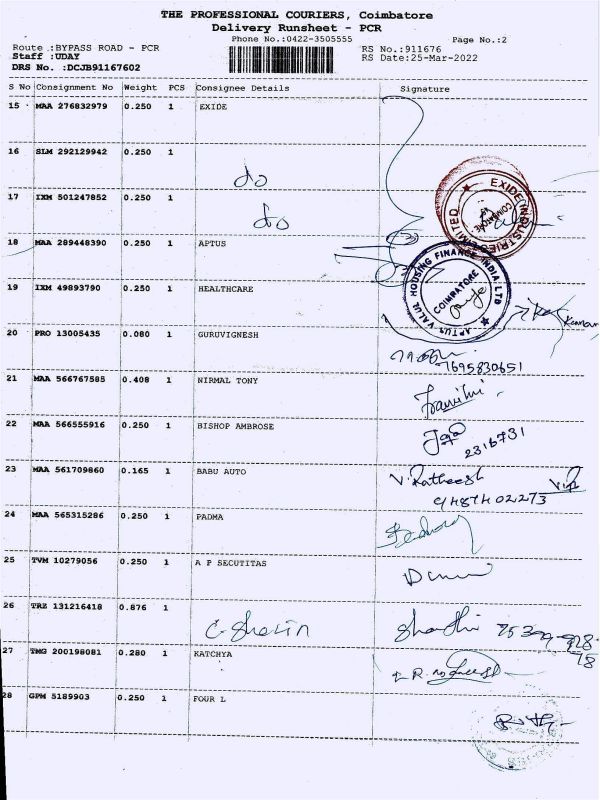 THE PROFESSIONAL COURIERS, Coimbatore
Delivery Runsheet - PCR
Phone No.:0422-3505555
Page No.:2
Route :BYPASS ROAD - PCR
RS No.:911676
Staff :UDAY
RS Date:25-Mar-2022
DRS No. :DCJB91167602
S No Consignment No Weight PCS Consignee Details Signature
15 MAA 276832979 0.250 1 EXIDE
16 SLM 292129942 0.250 1
do
17 IXM 501247852 0.250 1
do
EXIDE INDUSTRIES LIMITED
COIMBATORE
18 MAA 289448390 0.250 1 APTUS
APTUS VALUE HOUSING FINANCE INDIA LTD
COIMBATORE
19 IXM 49893790 0.250 1 HEALTHCARE
Kumar
20 PRO 13005435 0.080 1 GURUVIGNESH
7695830651
21 MAA 566767585 0.408 1 NIRMAL TONY
22 MAA 566555916 0.250 1 BISHOP AMBROSE
2316731
23 MAA 561709860 0.165 1 BABU AUTO V. Ratheesh
9487402273
24 MAA 565315286 0.250 1 PADMA
25 TVM 10279056 0.250 1 A P SECUTITAS
26 TRZ 131216418 0.876 1
27 TMG 200198081 0.280 1 KATCHYA
28 GPM 5189903 0.250 1 FOUR L